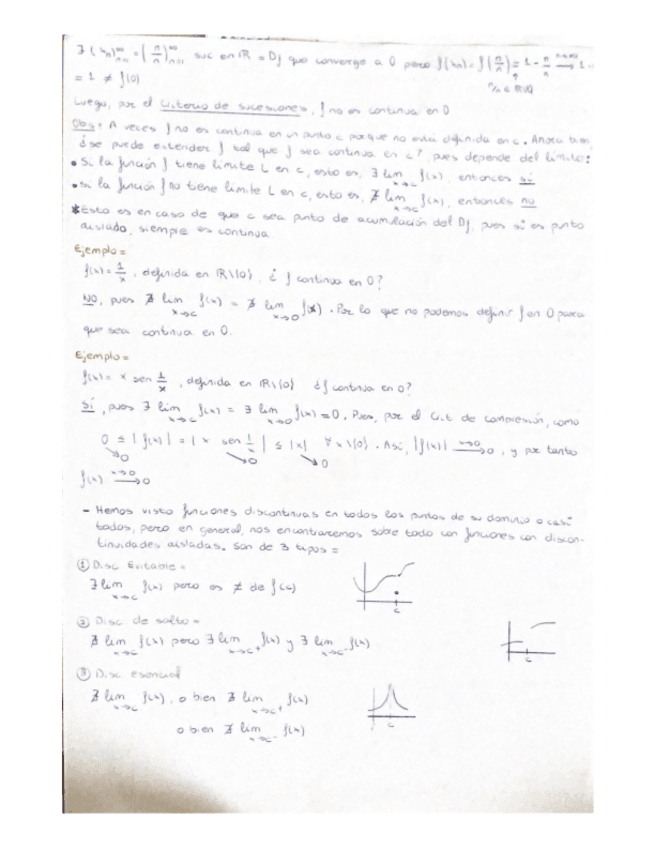 ∃ (xₙ)ₙ₌₁^∞ = (π/n)ₙ₌₁^∞ suc en ℝ = Df que converge a 0 pero f(xₙ) = f(π/n) = 1 - π/n → 1
= 1 ≠ f(0)
π/n ∈ ℝ\ℚ
Luego, por el Criterio de sucesiones, f no es continua en 0
Obs: A veces f no es continua en un punto c porque no está definida en c. Ahora bien
¿se puede extender f tal que f sea continua en c? pues depende del límite:
• Si la función f tiene límite L en c, esto es, ∃ lim x→c f(x), entonces sí
• si la función f no tiene límite L en c, esto es, ∄ lim x→c f(x), entonces no
*Esto es en caso de que c sea punto de acumulación del Df, pues si es punto
aislado, siempre es continua.
Ejemplo=
f(x) = 1/x, definida en ℝ\{0}, ¿f continua en 0?
NO, pues ∄ lim x→c f(x) = ∄ lim x→0 f(x). Por lo que no podemos definir f en 0 para
que sea continua en 0.
Ejemplo=
f(x) = x sen 1/x, definida en ℝ\{0} ¿f continua en 0?
Sí, pues ∃ lim x→c f(x) = ∃ lim x→0 f(x) = 0. Pues, por el Crit. de compresión, como
0 ≤ |f(x)| = |x sen 1/x| ≤ |x| ∀x\{0}. Así, |f(x)| x→0 → 0, y por tanto
→0 →0 →0
f(x) x→0 → 0
- Hemos visto funciones discontinuas en todos los puntos de su dominio o casi
todos, pero en general, nos encontraremos sobre todo con funciones con discon-
tinuidades aisladas. Son de 3 tipos =
① Disc Evitable =
∃ lim x→c f(x) pero es ≠ de f(c)
c
② Disc de salto =
∄ lim x→c f(x) pero ∃ lim x→c⁺ f(x) y ∃ lim x→c⁻ f(x)
c
③ Disc esencial
∄ lim x→c f(x), o bien ∄ lim x→c⁺ f(x)
o bien ∄ lim x→c⁻ f(x)
c